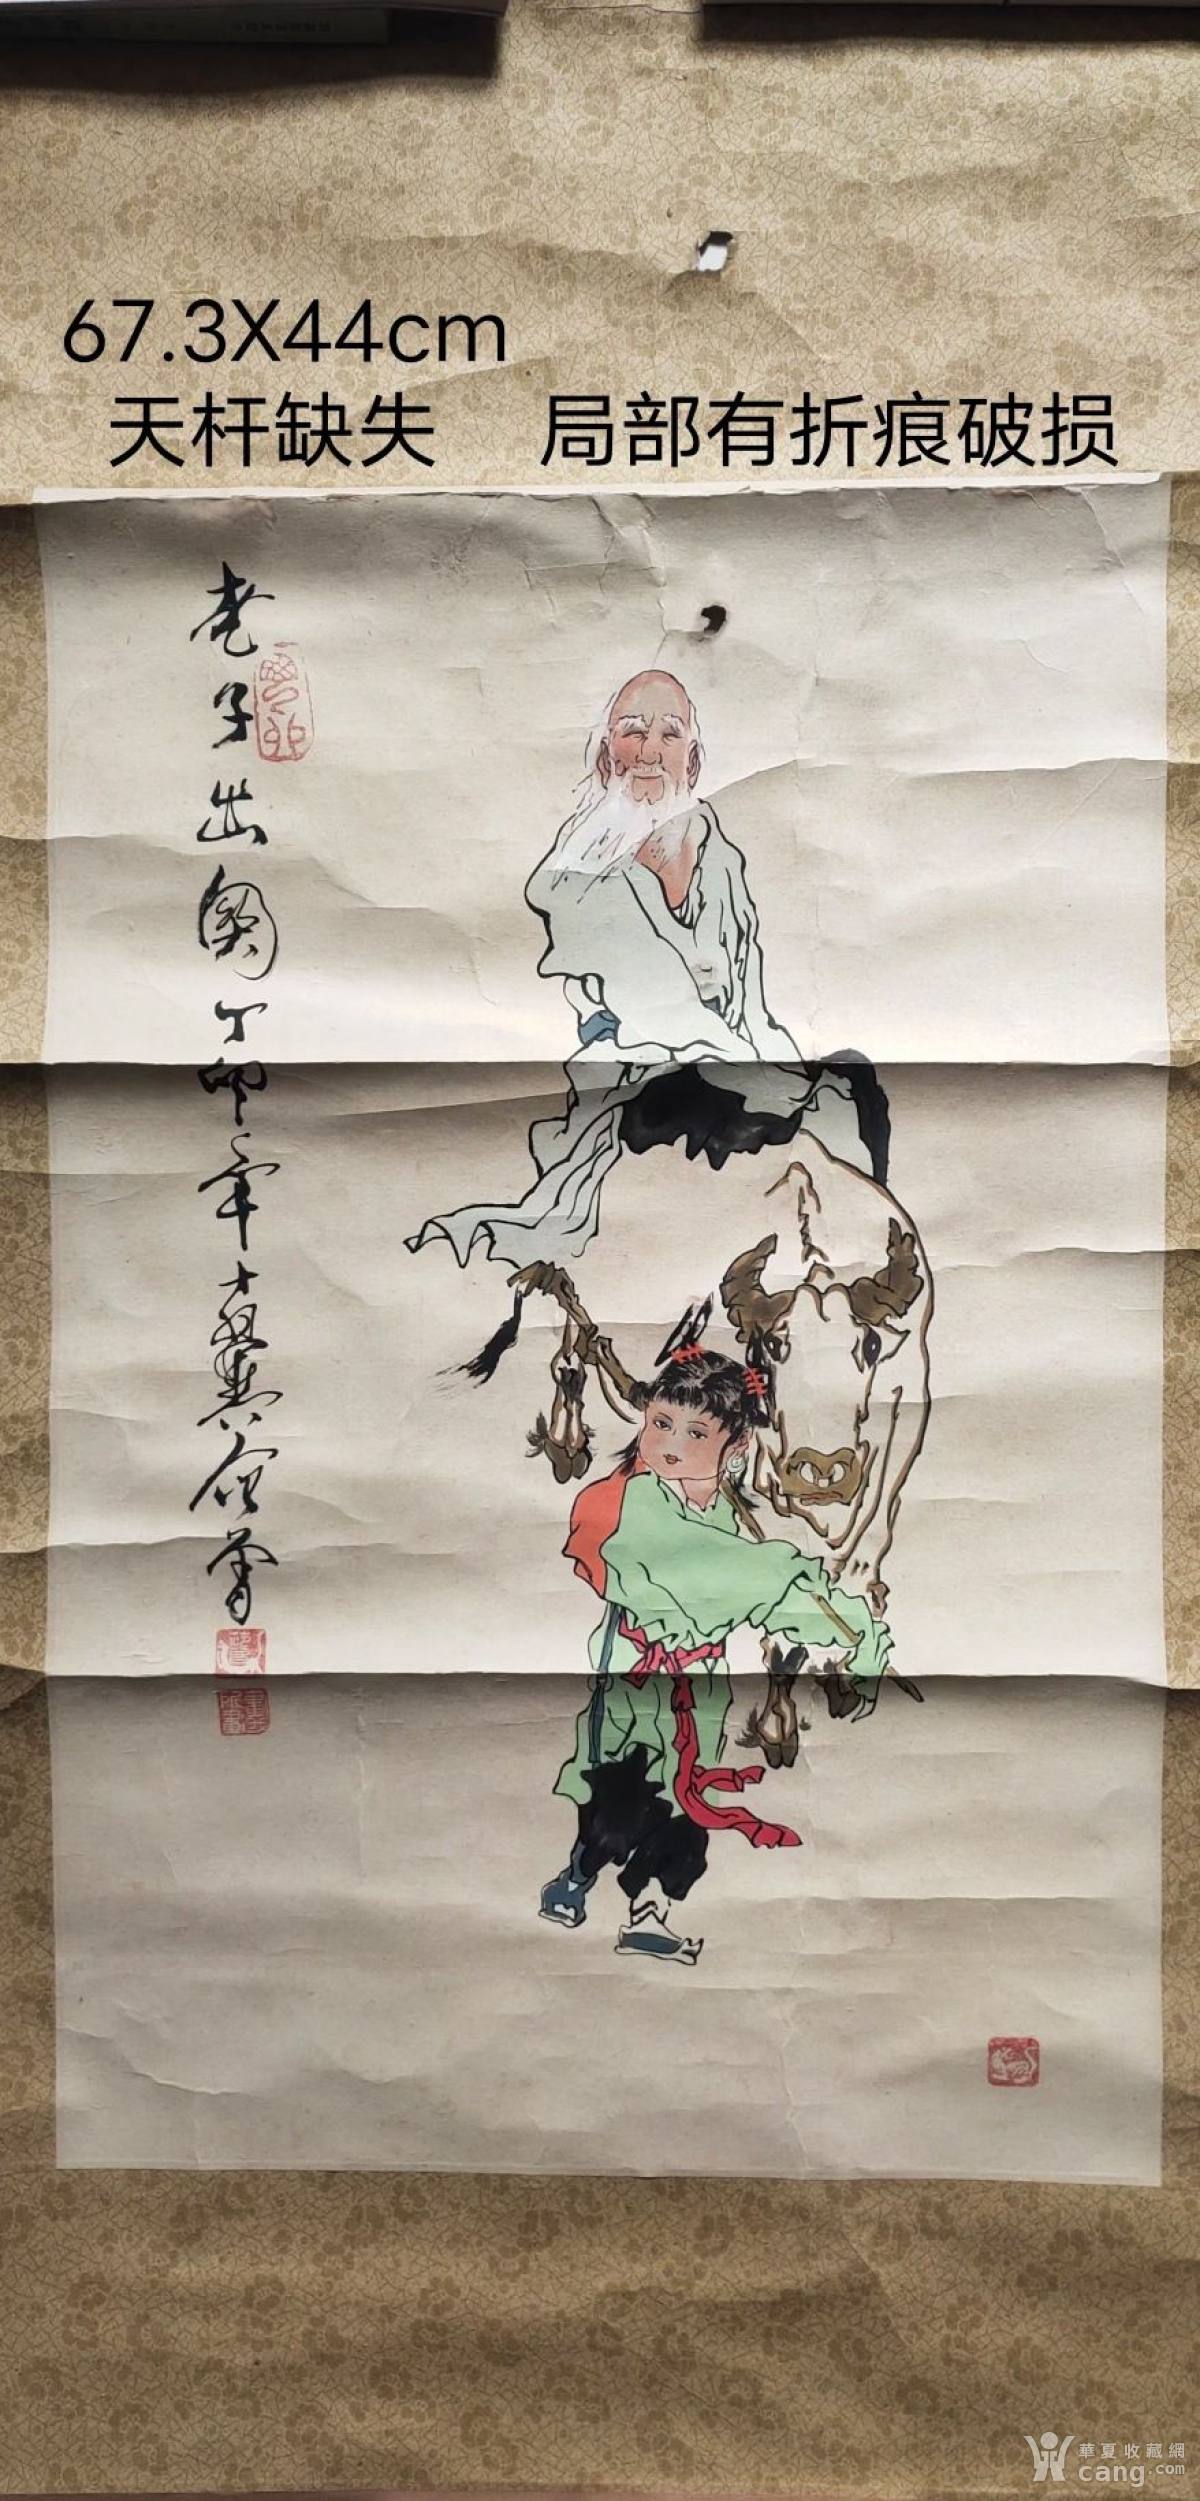 67.3X44cm
天杆缺失 局部有折痕破损
老子出関丁卯年十翼範曾
華夏收藏網
cang.com